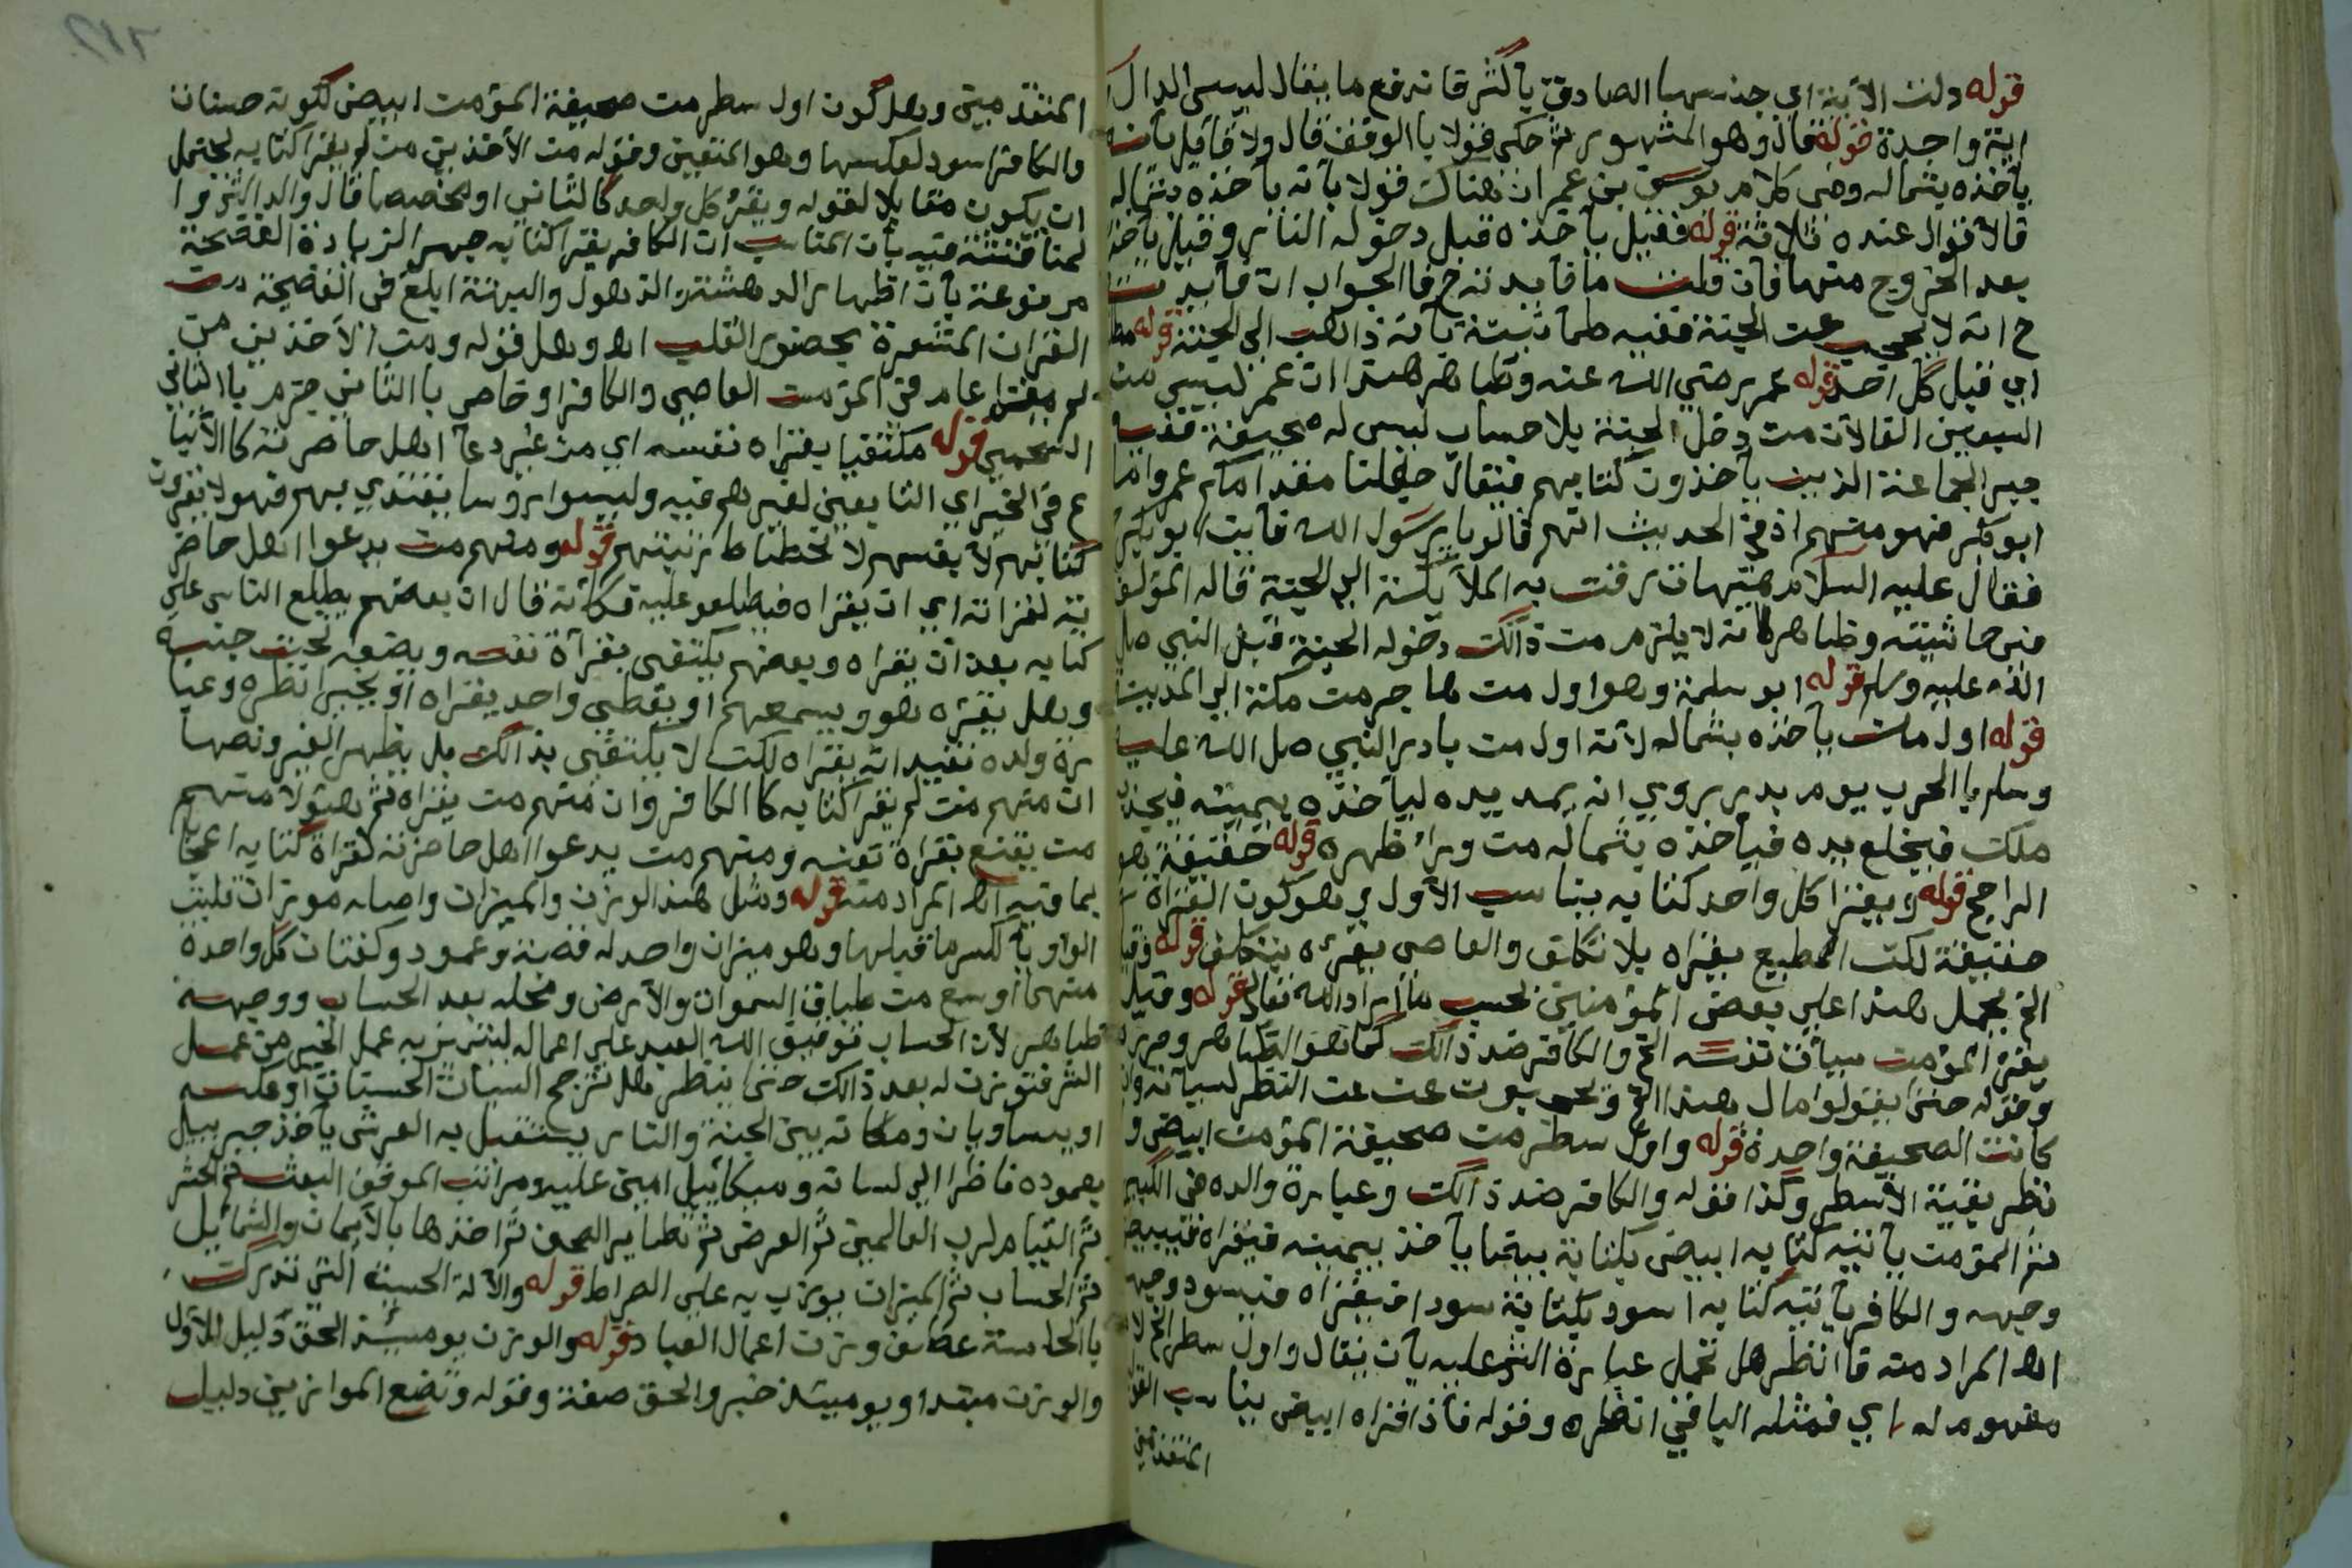 قوله دلت الآية اي جنسها الصادق بأكثر فاندفع ما يقال ليس الدال
اية واحدة قوله قال وهو المشهور ثم حكى قولا بالوقف قال ولا قائل بأنه
يأخذه بشماله وفي كلام يوسف بن عمر ان هناك قولا بأنه يأخذه بشماله
فالأقوال عنده ثلاثة قوله فقيل يأخذه قبل دخوله النار وقيل يأخذه
بعد الخروج منها فان قلت ما فايدته ح فالجواب ان فايدته
ح انه لا يحجب عن الجنة ففيه طمأنينة بأنه ذاهب الى الجنة قوله
اي قبل كل احد قوله عمر رضي الله عنه وظاهر هذا ان عمر ليس من
السبعين الفا لان من دخل الجنة بلا حساب ليس له صحيفة
الجماعة الذين يأخذون كتابهم فيقال مقدامكم عمر واما
ابو بكر فهو منهم اذ في الحديث انهم قالوا يا رسول الله فاين ابو بكر
فقال عليه السلام هيهات زفت به الملائكة الى الجنة قاله المؤلف
في حاشيته وظاهره انه لا يلزم من ذالك دخوله الجنة قبل النبي صلى
الله عليه وسلم قوله ابو سلمة وهو اول من هاجر من مكة الى المدينة
قوله اول من يأخذه بشماله لأنه اول من بادر النبي صلى الله عليه
وسلم بالحرب يوم بدر روي انه يمد يده ليأخذه بيمينه فيجذبه
ملك فيخلع يده فيأخذه بشماله من وراء ظهره قوله حقيقة هو
الراجح قوله ويقرا كل واحد كتابه يناسب الأول وهو كون القراة
حقيقة لكن المطيع يقراه بلا تكلف والعاصي يقرءه بتكلف قوله
الخ يحمل هذا على بعض المؤمنين بحسب ما اراد الله تعالى قوله وقيل
يقرا المؤمن سيأت نفسه الخ والكافر ضد ذالك كما هو الظاهر
وقوله حتى يقولوا مال هذا الخ عن النظر لسيآته
كانت الصحيفة واحدة قوله واول سطر من صحيفة المؤمن ابيض و
نظر بقية الأسطر وكذا قوله والكافر ضد ذالك وعبارة والده في الكبير
ثم المؤمن يأتيه كتابه ابيض بكتابة بيضا يأخذ بيمينه فيقراه فيبيض
وجهه والكافر يأتيه كتابه اسود بكتابة سودا فيقراه فيسود وجهه
اه المراد منه فانظر هل تحمل عبارة الشر عليه بأن يقال واول سطر الخ لا
مفهوم له اي فمثله الباقي انظره وقوله فاذا قراه ابيض يناسب القول
المتقدمين
المتقدمين وهل كون اول سطر من صحيفة المؤمن ابيض لكونه حسنات
والكافر اسود لعكسها وهو المتعين وقوله من الأخذين من لم يقرا كتابه يحتمل
ان يكون مقابلا لقوله ويقرا كل واحد كالثاني او مخصصا قال والد الش
لمناقشته فيه بأن المناسب ان الكافر يقرا كتابه جهرا لزيادة الفضيحة
مدفوعة بأن اظهار الدهشة والذهول والبهتة ابلغ في الفضيحة من
القران المشعرة بحضور القلب اه وهل قوله ومن الأخذين من
لم يقرا عام في المؤمن العاصي والكافر او خاص بالثاني جزم بالثاني
السحيمي قوله مكتفيا يقراه نفسه اي من غير دعا اهل حاضرته كالأنبيا
ع في الخير اي التابعين لغيرهم فيه وليسوا رؤسا يقتدي بهم فهولا يقرون
كتابهم لأنفسهم لانحطاط رتبتهم قوله ومنهم من يدعوا اهل حاضر
ته لقراته اي ان يقراه فيطلعوا عليه فكأنه قال ان بعضهم يطلع الناس على
كتابه بعد ان يقراه وبعضهم يكتفي بقرأة نفسه ويضعه تحت جنبه
وهل يقرءه هو ويسمعهم او يعطي واحد يقراه او يخير انظره وعبا
رة ولده تفيد انه يقراه لكن لا يكتفي بذالك بل يظهر لغيره ونصها
ان منهم من لم يقرا كتابه كالكافر وان منهم من يقراه ثم هؤلا منهم
من يقنع بقراة نفسه ومنهم من يدعوا اهل حاضرته لقراة كتابه اعجابا
بما فيه اه المراد منه قوله ومثل هذا الوزن والميزان واصله موزان قلبت
الواو ياء لكسر ما قبلها وهو ميزان واحد له قصبة وعمود وكفتان كل واحدة
منهما اوسع من طباق السموات والأرض ومحله بعد الحساب ووجهه
ظاهر لان الحساب توقيف الله العبد على اعماله ليتميز به عمل الخير من عمل
الشر فتوزن له بعد ذالك حتى ينظر هل ترجح السيأت الحسنات او عكسه
او يتساويان ومكانه بين الجنة والنار يستقبل به العرش يأخذ جبريل
بعموده ناظرا الى لسانه وميكائيل امين عليه ومراتب الموقف البعث ثم الحشر
ثم القيام لرب العالمين ثم العرض ثم تطاير الصحف ثم اخذها بالأيمان والشمائيل
ثم الحساب ثم الميزان يوزن به على الصراط قوله والآلة الحسية التي تدرك
بالحاسة عطف وزن اعمال العباد قوله والوزن يوميئذ الحق دليل للأول
والوزن مبتدا ويوميئذ خبر والحق صفة وقوله ونضع الموازين دليل